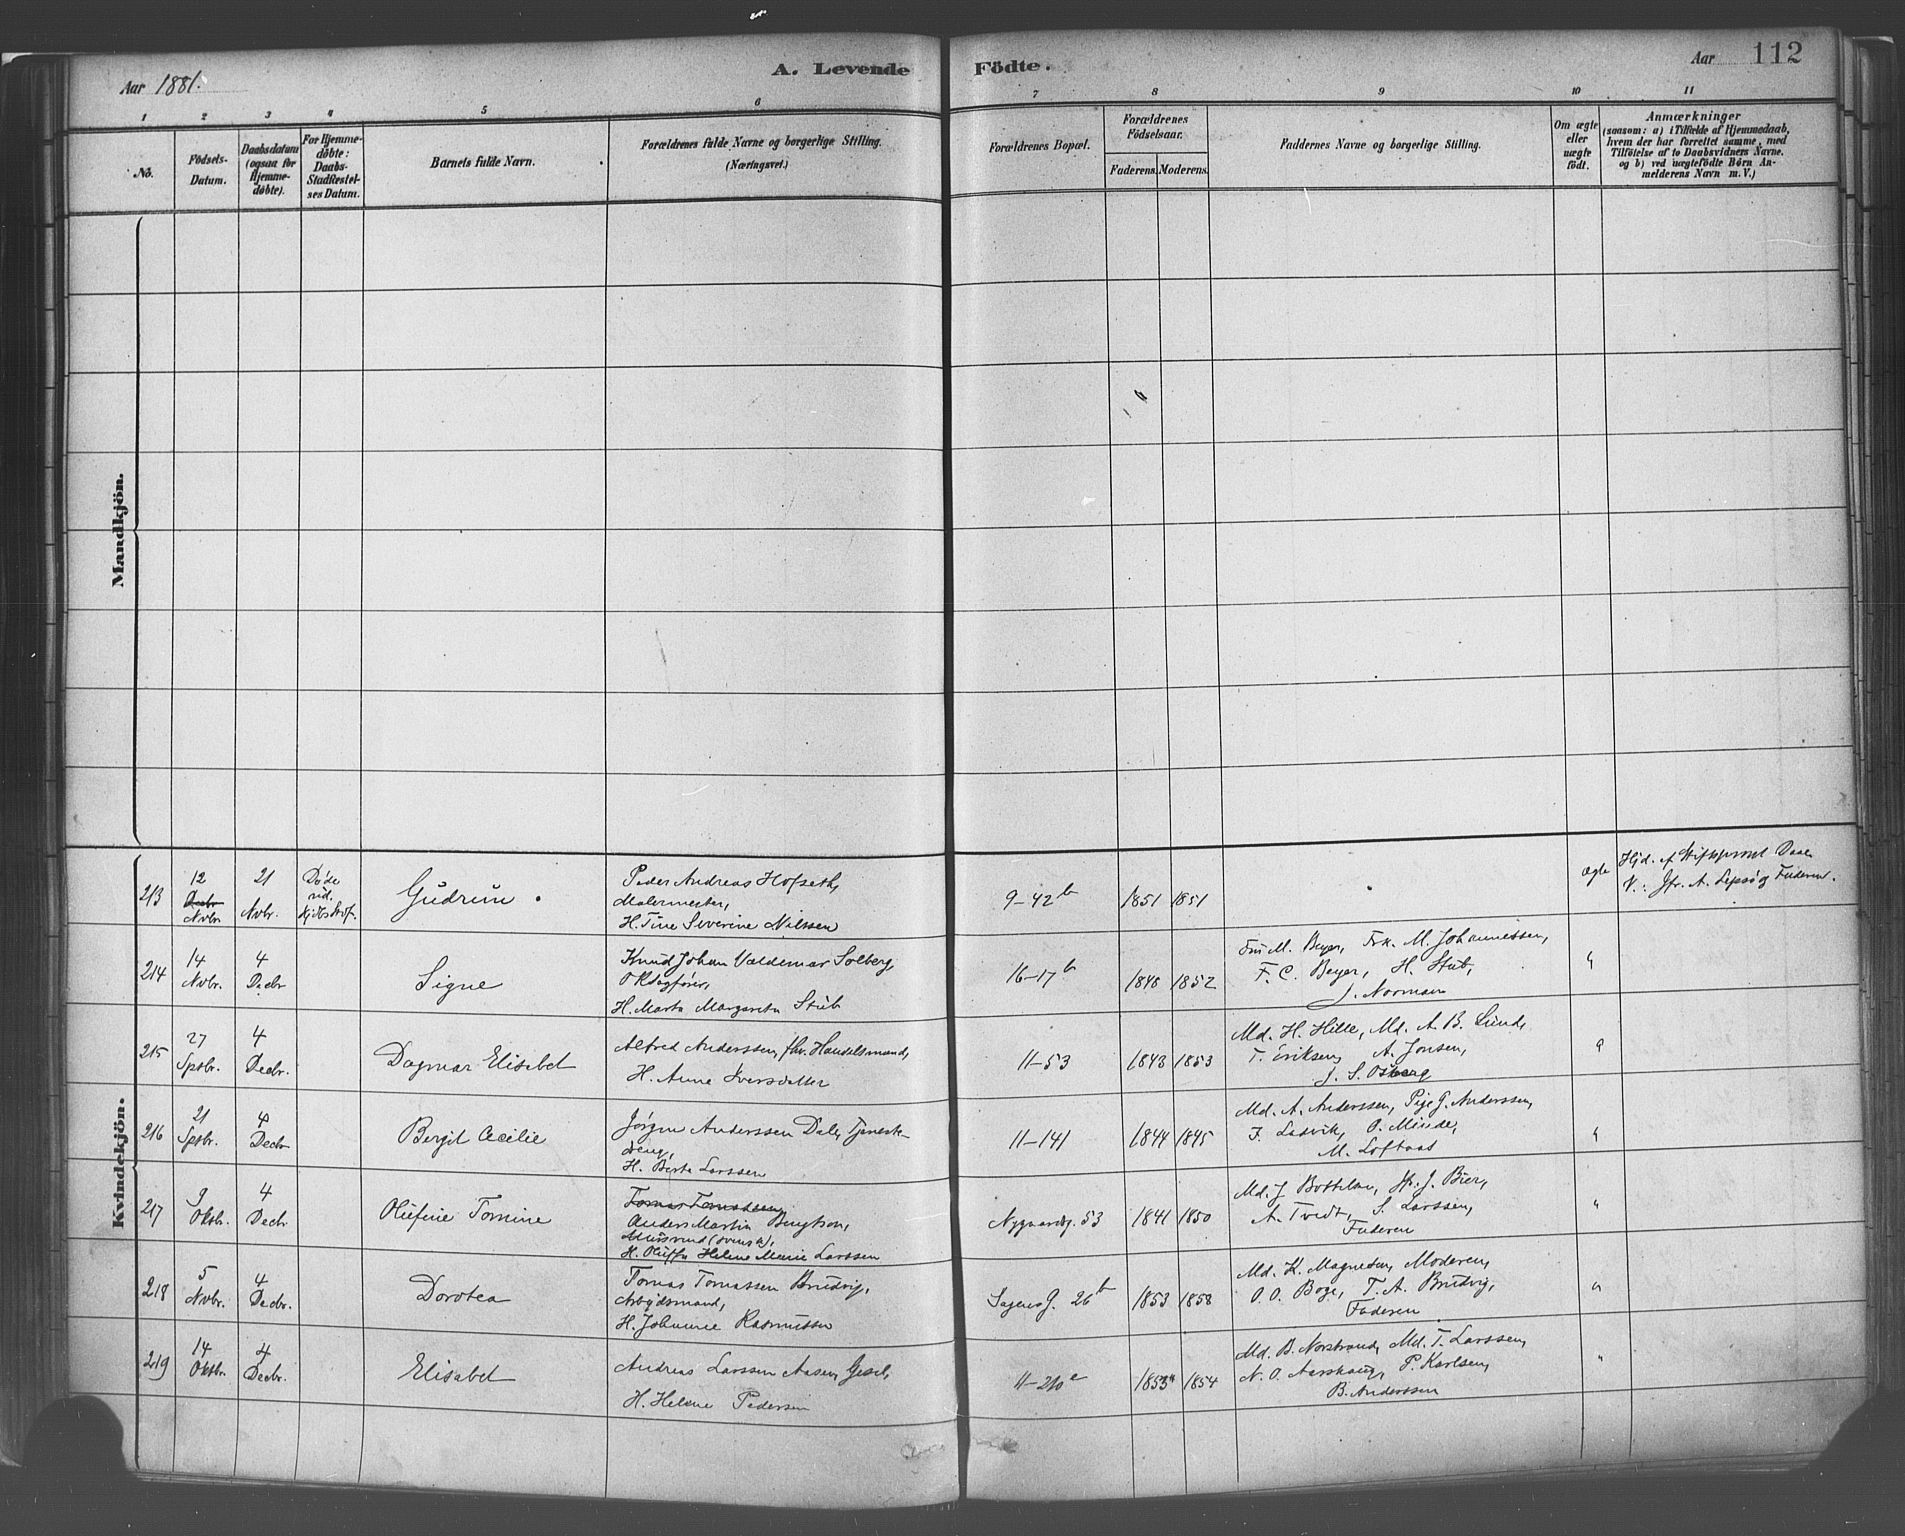 Aar 1881.
A. Levende Födte.
Aar 112
1 2 3 4 5 6 7 8 9 10 11
No.
Födsels-
Datum.
Daabsdatum
(ogsaa for
Hjemme-
döbte).
For Hjemme-
döbte:
Daabs-
Stadfæstel-
ses Datum.
Barnets fulde Navn.
Forældrenes fulde Navne og borgerlige Stilling.
(Næringsvei.)
Forældrenes Bopæl.
Forældrenes
Födselsaar.
Faderens. Moderens.
Faddernes Navne og borgerlige Stilling.
Om ægte
eller
uægte
født.
Anmærkninger
(saasom: a) i Tilfælde af Hjemmedaab,
hvem der har forrettet samme, med
Tilföielse af to Daabsvidners Navne,
og b) ved uægtefödte Börn An-
melderens Navn m. V.)
Mandkjön.
Kvindekjön.
213
12
Decbr
Nvbr
21
Nvbr.
Døde
Gudrun.
Peder Andreas Hofseth,
Malermester,
H. Tine Severine Nilssen
9-42 b
1851 1851
ægte
Hjd. af Stiftsprovst Daae
V.: Jfr. A. Lepsø og Faderen.
214
14
Nvbr.
4
Decbr
Signe
Knud Johan Valdemar Solberg,
H. Marta Margareta Stub
16-17 b
1848 1852
Fru M. Beyer, Frk. M. Johannessen,
F. C. Beyer, H. Stub,
J. Norman
"
215
27
Spbr.
4
Decbr.
Dagmar Elisabet
Alfred Anderssen, fhv. Handelsmand,
H. Anne Iversdatter
11-53
1843 1853
Md. H. Hille, Md. A. B. Lund,
T. Eriksen, A. Jonsen,
J. S. Osberg
"
216
21
Spbr.
4
Decbr
Bergit Cecilie
Jørgen Anderssen Dale, Tjeneste-
dreng,
H. Berta Larssen
11-141
1844 1845
Md. A. Anderssen, Pige G. Anderssen,
F. Ladvik, O. Minde,
M. Loftaas
"
217
9
Oktbr.
4
Decbr
Olufine Tomine
Tomas Tomassen,
Anders Martin Bengtson,
Mursvend (svensk),
H. Oluffa Helene Marie Larssen
Nygaardsg. 53
1841 1850
Md. J. Bottelsen, Hr. J. Bier,
A. Tvedt, S. Larssen,
Faderen
"
218
5
Nvbr.
4
Decbr.
Dorotea
Tomas Tomassen Brudvig,
Arbejdsmand,
H. Johanne Rasmussen
26 b
1853 1858
Md. K. Magnesen, Moderen,
O. O. Boge, T. A. Brudvig,
Faderen
"
219
14
Oktbr.
4
Decbr.
Elisabet
Andreas Larssen Aasen,
H. Helene Pedersen
11-210 e
1853 1854
Md. B. Norstrand, Md. T. Larssen,
N. O. Aarskaug, P. Karlsen,
B. Anderssen
"